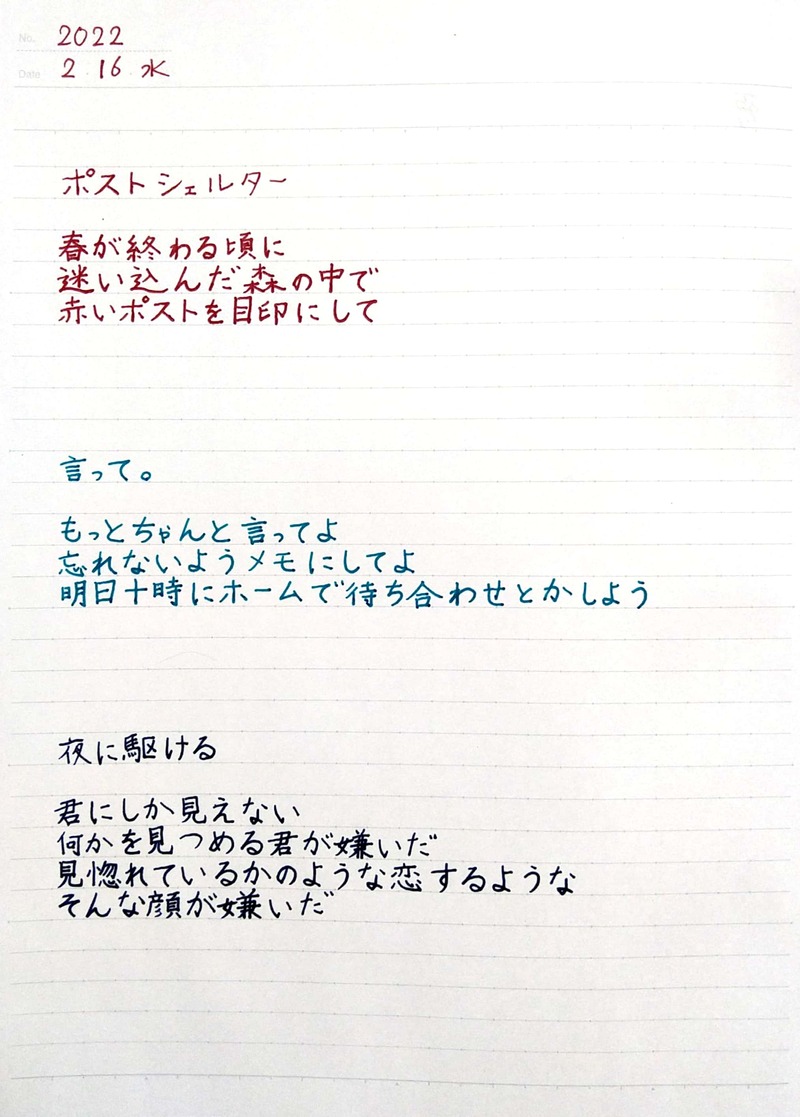 No. 2022
Date 2 16 水
ポストシェルター
春が終わる頃に
迷い込んだ森の中で
赤いポストを目印にして
言って。
もっとちゃんと言ってよ
忘れないようメモにしてよ
明日十時にホームで待ち合わせとかしよう
夜に駆ける
君にしか見えない
何かを見つめる君が嫌いだ
見惚れているかのような恋するような
そんな顔が嫌いだ